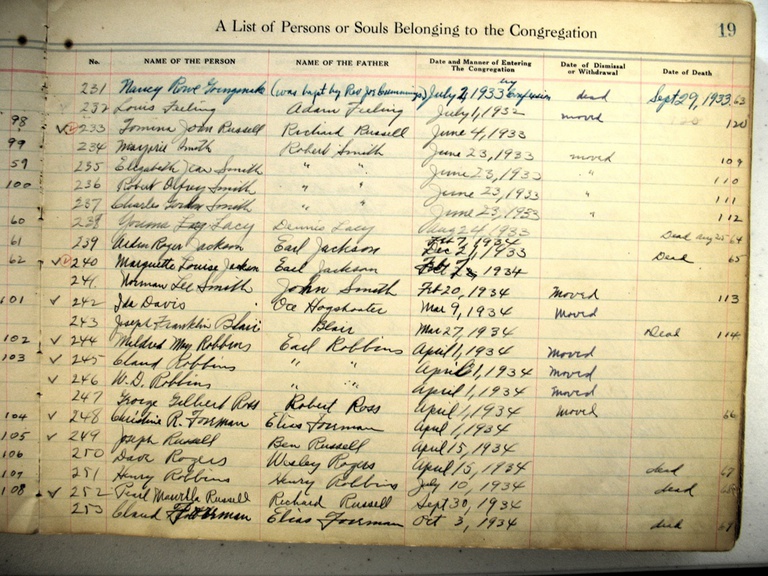 A List of Persons or Souls Belonging to the Congregation 19
No. NAME OF THE PERSON NAME OF THE FATHER Date and Manner of Entering The Congregation Date of Dismissal or Withdrawal Date of Death
231 Nancy Rowe (was bapt by Rev Jos July 2, 1933 by confession dead Sept 29, 1933 63
232 Louis Feeling Adam Feeling July 1, 1932 moved 120
98 233 Tomina John Russell Richard Russell June 4, 1933
99 234 Marjorie Smith Robert Smith June 23, 1933 moved 109
59 235 Elizabeth Jean Smith " " June 23, 1933 " 110
100 236 Robert Smith " " June 23, 1933 " 111
237 Charles Smith " " June 23, 1933 " 112
60 238 Lacy Dennis Lacy Aug 24 1933 Dead Aug 25 64
61 239 Roger Jackson Earl Jackson Feb 7, 1934 Dec 21, 1933
62 240 Marguette Louise Jackson Earl Jackson 1934 Dead 65
241 Norman Lee Smith John Smith Feb 20, 1934 Moved 113
101 242 Ida Davis Oce Hogshooter Mar 9, 1934 Moved
243 Joseph Franklin Blair Blair Mar 27, 1934 Dead 114
102 244 Mildred May Robbins Earl Robbins April 1, 1934 Moved
103 245 Claud Robbins " " April 1, 1934 Moved
246 W. D. Robbins " " April 1, 1934 Moved
247 George Gilbert Ross Robert Ross April 1, 1934 Moved 66
104 248 Christine R. Fourman Elias Fourman April 1, 1934
105 249 Joseph Russell Ben Russell April 15, 1934
106 250 Dave Rogers Wesley Rogers April 15, 1934 dead 67
107 251 Henry Robbins Henry Robbins July 10, 1934 dead 68
108 252 Pearl Russell Richard Russell Sept 30, 1934
253 Claud Fourman Elias Fourman Oct 3, 1934 died 69